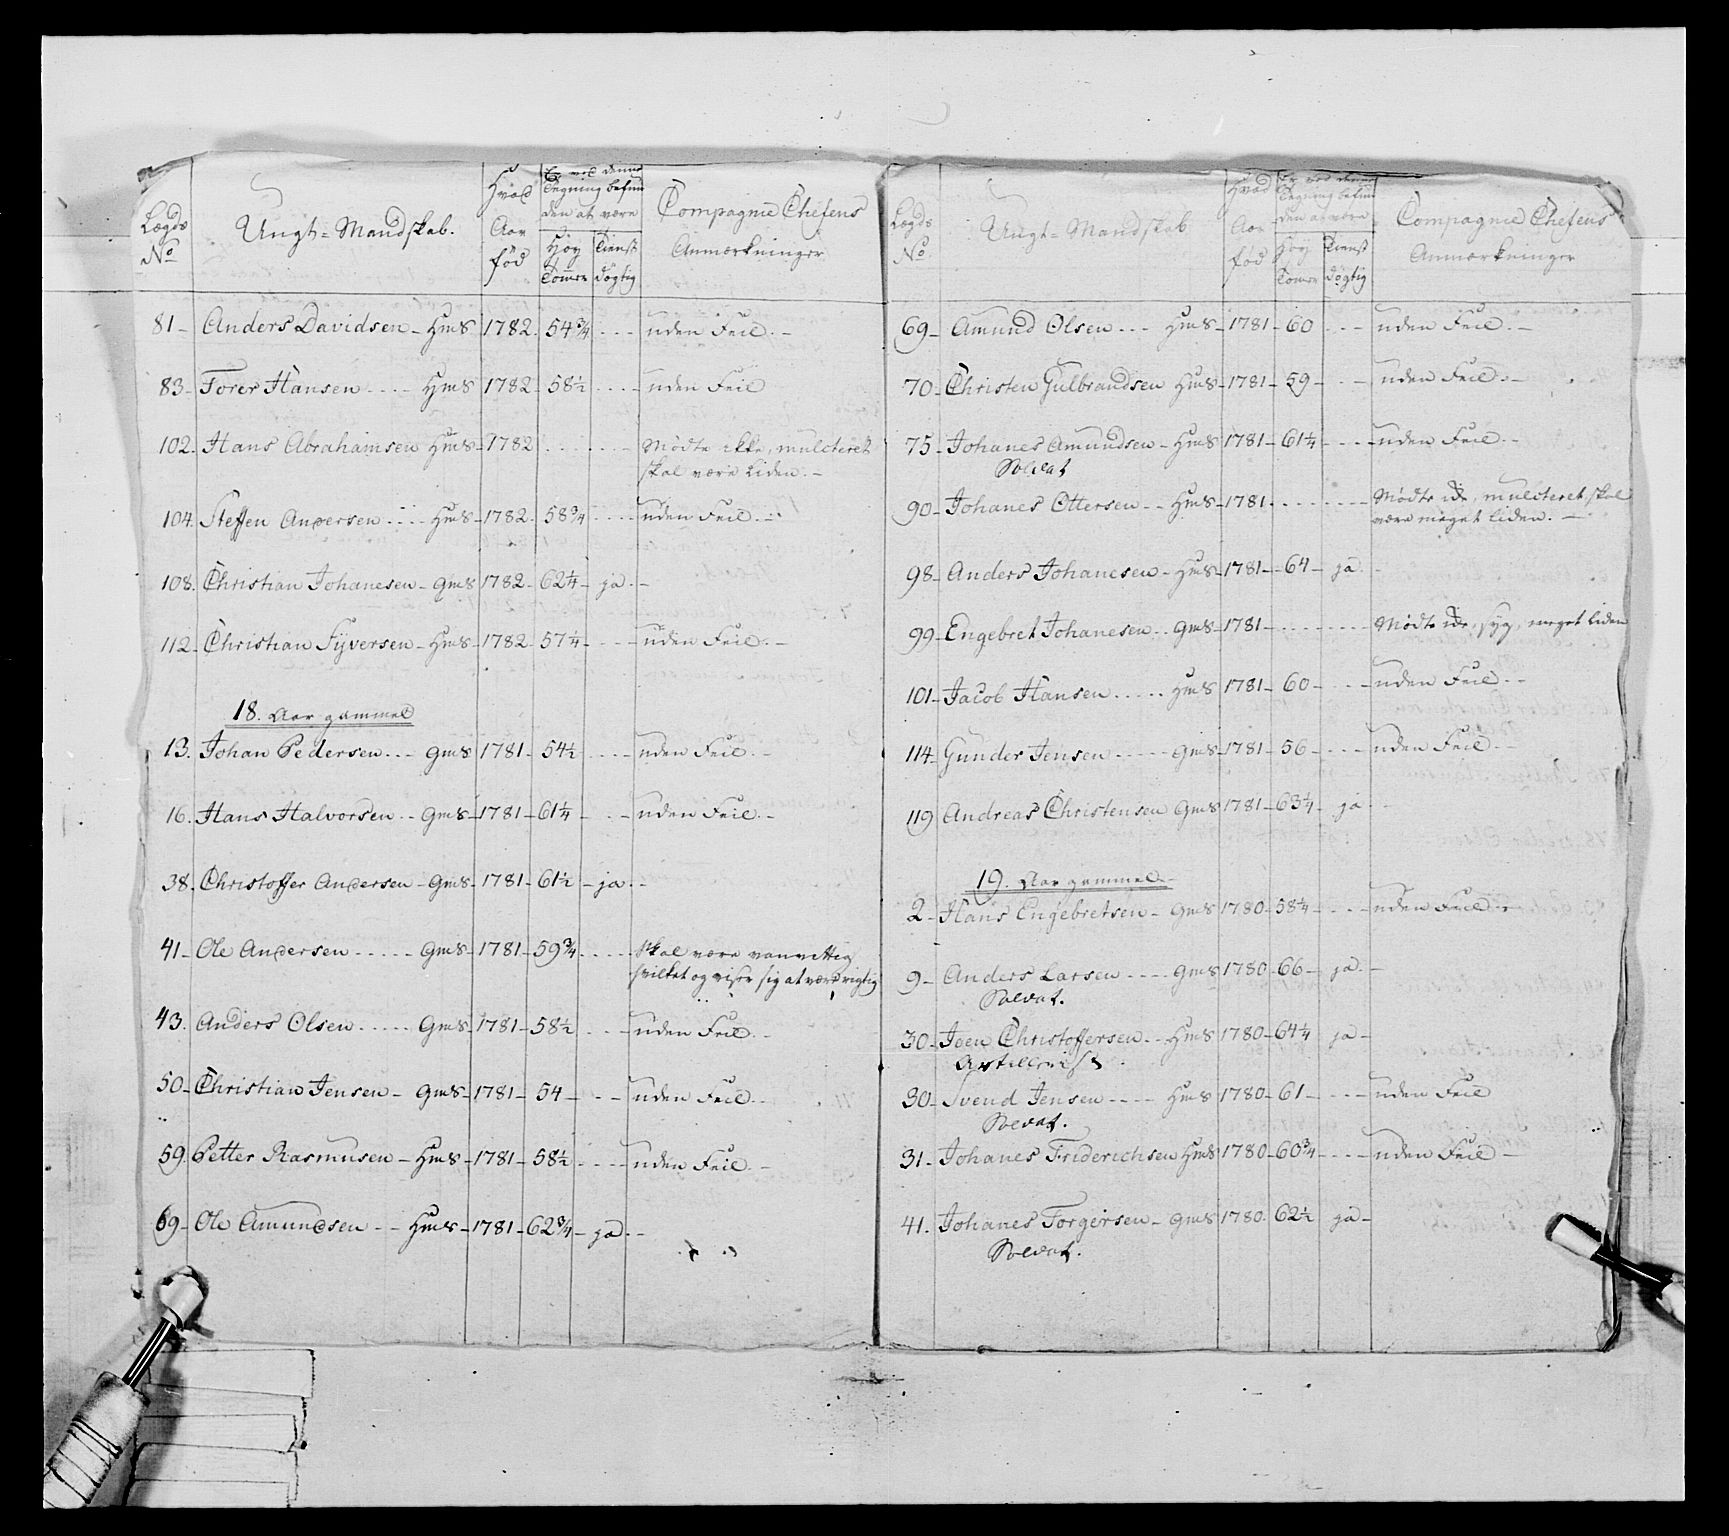 Lægds No Ungt-Mandskab. Hvad Aar fød Er ved denne Tegning befunden at være Høy Tommer Tienst døgtig Compagnie Chefens Anmærkninger
81 - Anders Davidsen - HmS 1782. 54 3/4 - - - uden Feil. -
83 - Torer Hansen - - - - HmS 1782 - 58 1/2 - - - - uden Feil
102. Hans Abrahamsen HmS - 1782 - - - - Mødte ikke, mulcteret
skal være Liden. -
104. Steffen Andersen - - - - HmS - 1782. 58 3/4 - - - - uden Feil. -
108. Christian Johanesen - GmS 1782 - 62 1/4 - ja. -
112. Christian Syversen - HmS - 1782 - 57 1/4 - - - - uden Feil. -
18. Aar gammel
13. Johan Pedersen - - - GmS 1781 - 54 1/2 - - - uden Feil. -
16. Hans Halvorsen - - GmS - 1781 - 61 1/4 - - - uden Feil. -
38. Christoffer Andersen - GmS - 1781 - 61 1/2 - ja. -
41 - Ole Andersen - - - - - GmS - 1781 - 59 3/4 - - - - Skal være vanvittig
hvilket og viser sig at være rigtig
43. Anders Olsen - - - - - GmS - 1781 - 58 1/2 - - - uden Feil. -
50 - Christian Jensen - GmS - 1781 - 54 - - - uden Feil. -
59. Petter Rasmusen - HmS - 1781 - 58 1/2 - - - - uden Feil. -
69 - Ole Amundsen - - HmS - 1781 - 62 3/4 - ja. -
Lægds No Ungt-Mandskab Hvad Aar fød Er ved denne Tegning befunden at være Høy Tommer Tienst døgtig Compagnie Chefens Anmærkninger
69 - Amund Olsen - - - HmS - 1781 - 60 - - - uden Feil. -
70 - Christen Gulbrandsen HmS - 1781 - 59 - - - uden Feil. -
75 - Johanes Amundsen - HmS 1781 - 61 1/4 - - - - uden Feil. -
Soldat
90 - Johanes Ottersen - - HmS - 1781 - - - - - - Mødte ikke, mulcteret, skal
være meget liden. -
98 - Anders Johanesen - HmS - 1781 - 64 - ja. -
99 - Engebret Johanesen - - GmS - 1781 - - - - - - Mødte ikke, syg, meget liden
101 - Jacob Hansen - - - - - HmS 1781 - 60 - - - - uden Feil. -
114 - Gunder Jensen - - - - - GmS - 1781 - 56 - - - - uden Feil. -
119 Andreas Christensen GmS 1781 - 63 1/4 - ja -
19. Aar gammel -
2 - Hans Engebretsen - GmS 1780 - 58 1/4 - - - - uden Feil -
9 - Anders Larsen - - - - GmS 1780 - 66 - ja. -
Soldat.
30 - Joen Christoffersen - - HmS 1780 - 64 1/4 ja -
Artillerist
30 - Svend Jensen - - - - HmS 1780 - 61 - - - - uden Feil
Soldat.
31 - Johanes Friderichsen HmS 1780 - 60 3/4 - - - - uden Feil -
41. Johanes Torgersen - GmS 1780. 62 1/2 ja -
Soldat.